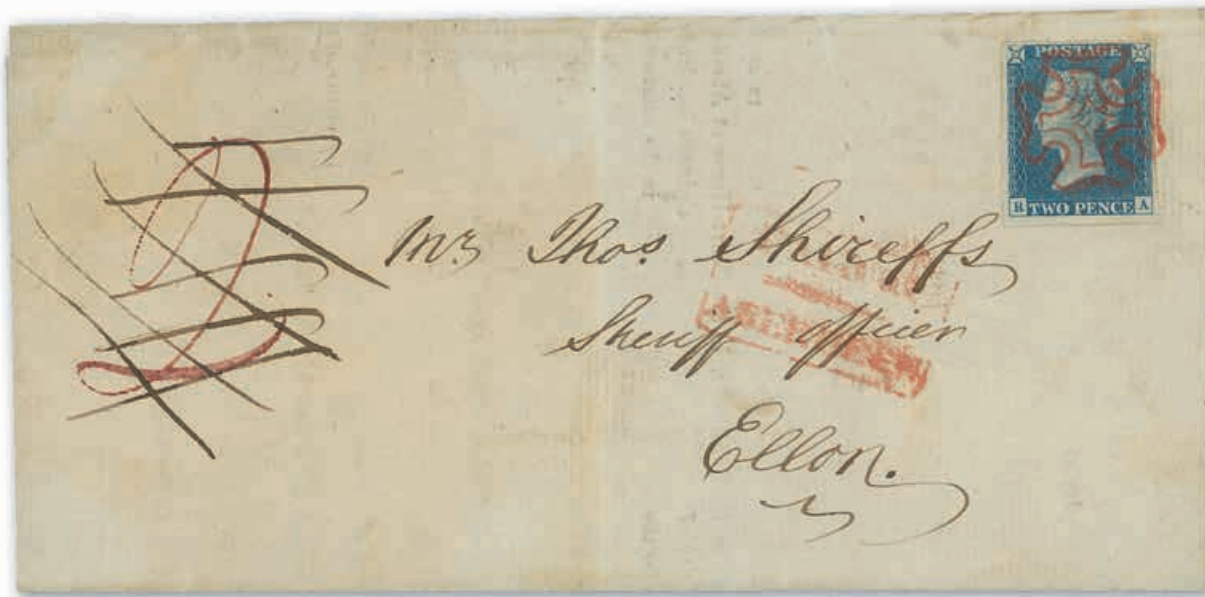 POSTAGE
R A
TWO PENCE
Mr Thos. Shireffs
Sheriff Officer
Ellon.
2